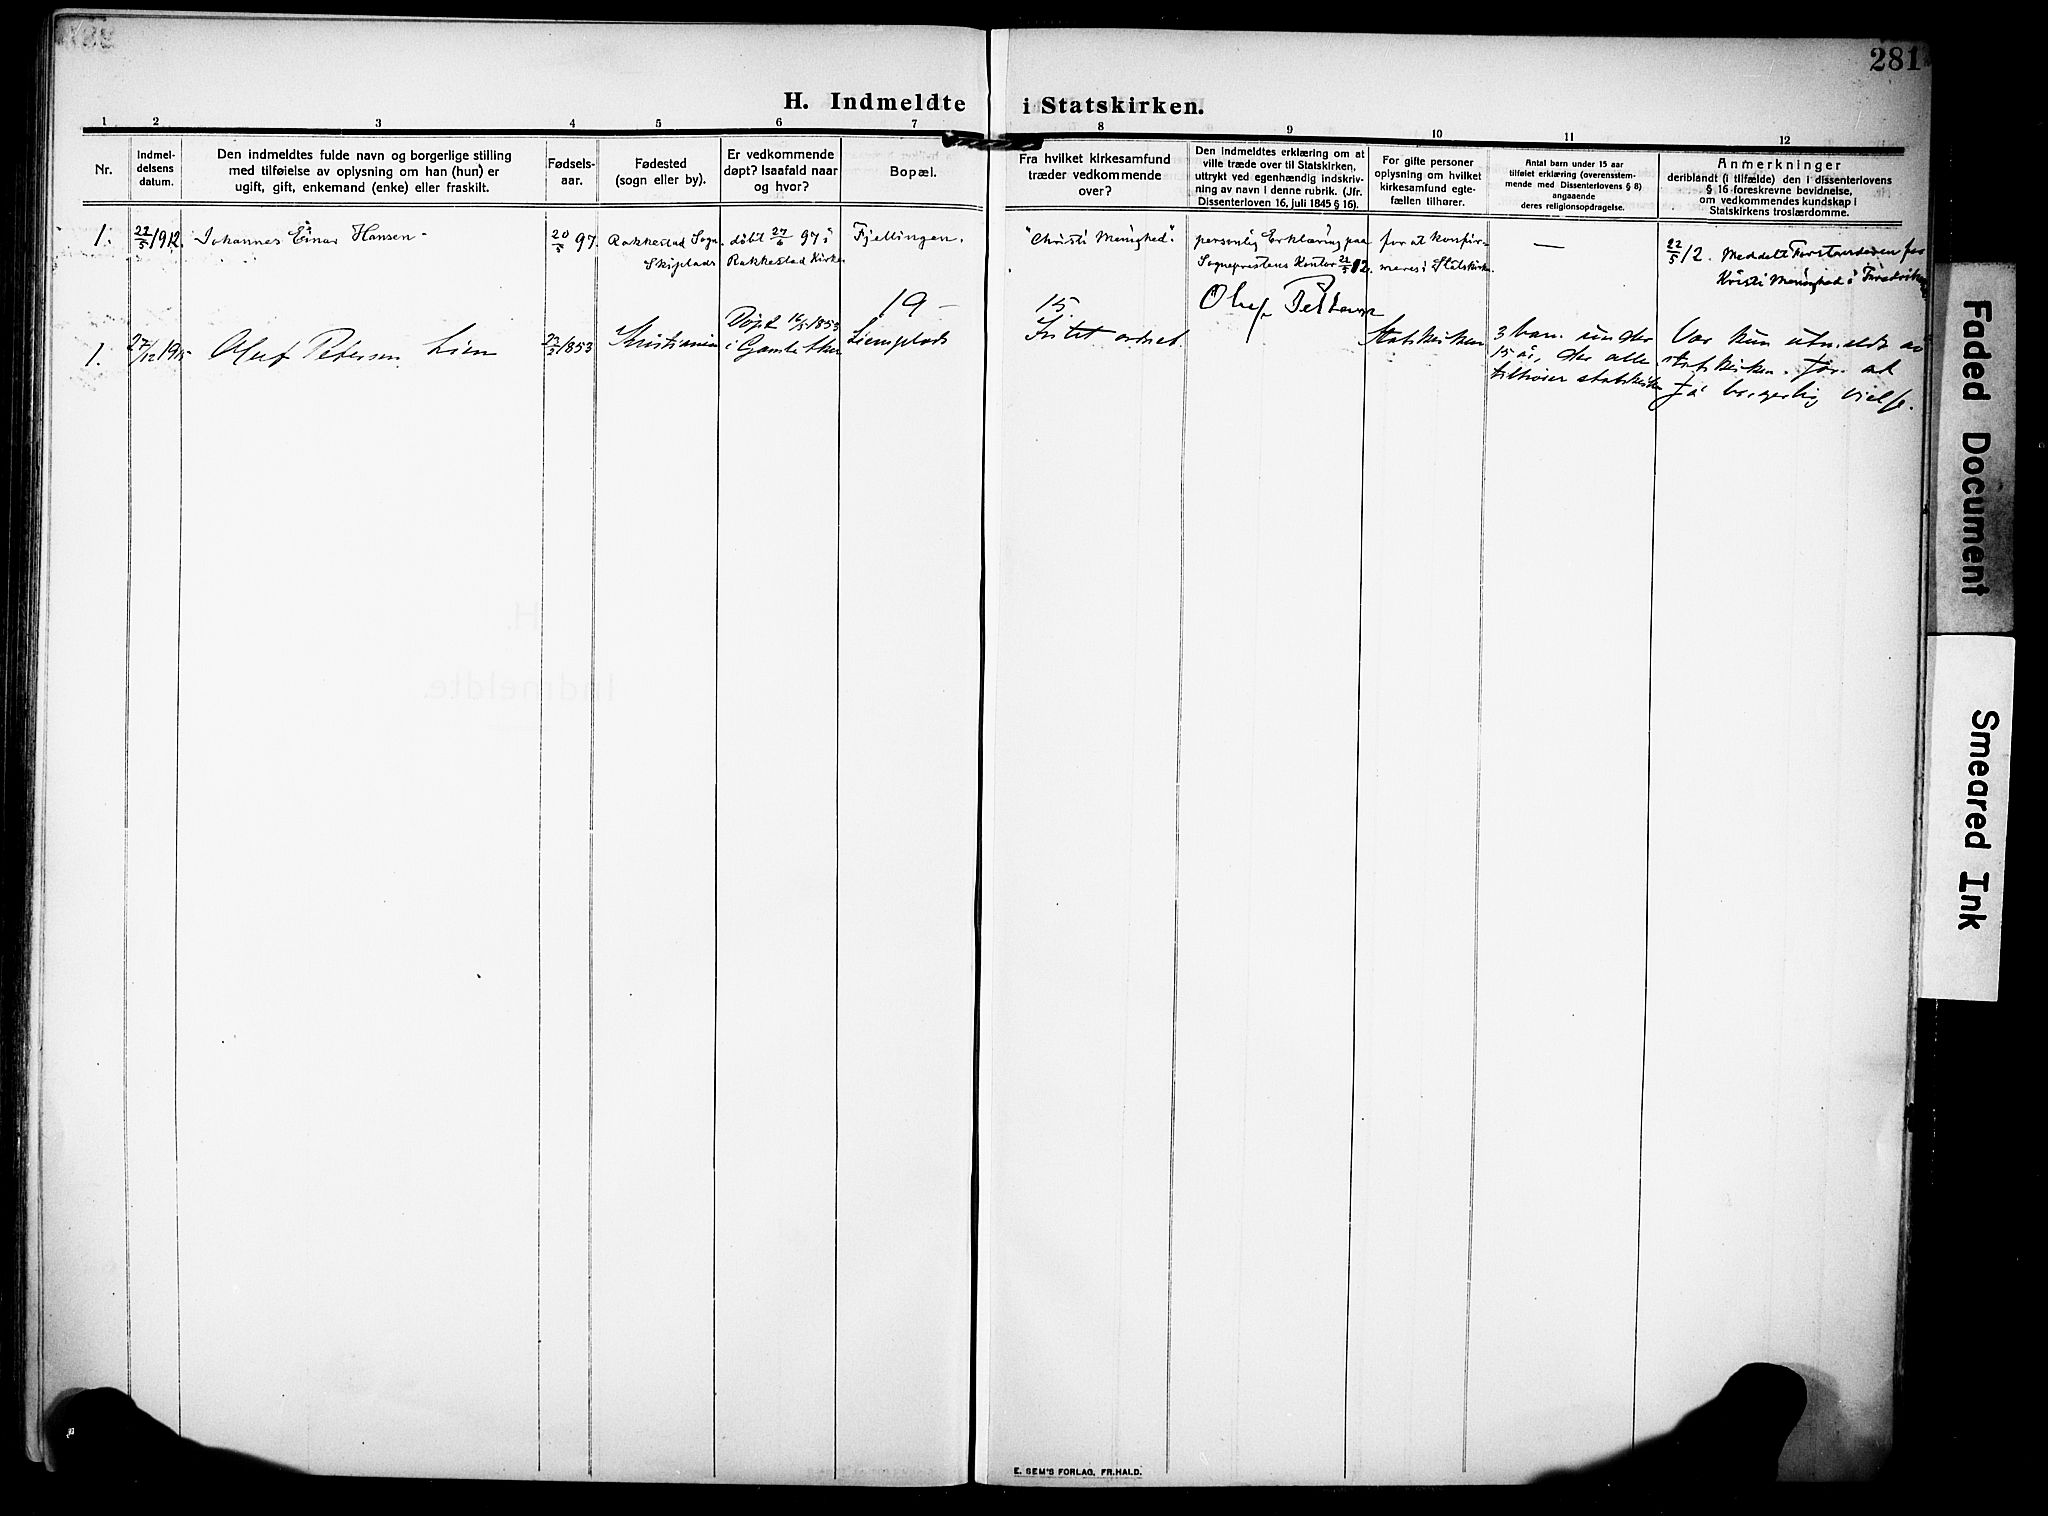 281
H. Indmeldte i Statskirken.
1 2 3 4 5 6 7 8 9 10 11 12
Nr.
Indmel-
delsens
datum.
Den indmeldtes fulde navn og borgerlige stilling
med tilføielse av oplysning om han (hun) er
ugift, gift, enkemand (enke) eller fraskilt.
Fødsels-
aar.
Fødested
(sogn eller by).
Er vedkommende
døpt? Isaafald naar
og hvor?
Bopæl.
Fra hvilket kirkesamfund
træder vedkommende
over?
Den indmeldtes erklæring om at
ville træde over til Statskirken,
uttrykt ved egenhændig indskriv-
ning av navn i denne rubrik. (Jfr.
Dissenterloven 16. juli 1845 § 16).
For gifte personer
oplysning om hvilket
kirkesamfund egte-
fællen tilhører.
Antal barn under 15 aar
tilføiet erklæring (overensstem-
mende med Dissenterlovens § 8)
angaaende
deres religionsopdragelse.
Anmerkninger
deriblandt (i tilfælde) den i dissenterlovens
§ 16 foreskrevne bevidnelse,
om vedkommendes kundskap i
Statskirkens troslærdomme.
1.
22/5 1912.
Johannes Einar Hansen -
20/5 97.
Rakkestad Sogn.
Skiplads
døbt 27/6 97 i
Rakkestad Kirke
Fjellingen.
"Christi Menighed".
personlig Erklæring paa
Sogneprestens Kontor 22/5 12.
for at konfir-
meres i Statskirken
—
22/5 12. Meddelt Forstanderen for
Kristi Menighed i
19 — 15.
1.
27/12 1915
Oluf Petersen Lien
/3 1853
Kristiania
Døpt 16/5 1853
i Gamle Aker
Liensplads
Intet andet.
Oluf Petersen
Statskirken
3 barn under
15 år, der alle
tilhører statskirken
Var kun utmeldt av
statskirken for at
få borgerlig vielse.
E. SEM'S FORLAG, FR.HALD.
H.
Indmeldte.
Faded Document
Smeared Ink